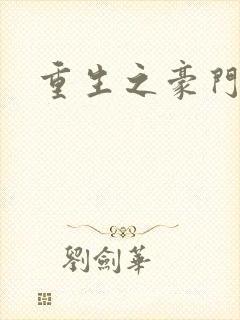 重生之豪門
劉劍華